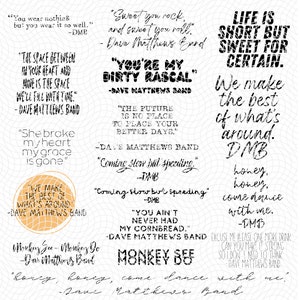 "You wear nothing
but you wear it so well."
-DMB
"Sweet you rock
and sweet you roll."
- Dave Matthews Band
LIFE IS
SHORT BUT
SWEET FOR
CERTAIN.
"THE SPACE BETWEEN
IN YOUR HEART AND
MINE IS THE SPACE
WE'LL FILL WITH TIME."
-DAVE MATTHEWS BAND
"YOU'RE MY
DIRTY RASCAL"
-DAVE MATTHEWS BAND
We make
the best
of what's
around.
DMB
"THE FUTURE
IS NO PLACE
TO PLACE YOUR
BETTER DAYS."
-DAVE MATTHEWS BAND
"She broke
my heart
my grace
is gone"
"Coming slow but speeding."
-DMB
"Coming slow but speeding"
-DMB
honey,
honey,
come
dance
with me.
-DMB
"WE MAKE
THE BEST OF
WHAT'S AROUND."
-DAVE MATTHEWS BAND
"YOU AIN'T
NEVER HAD
MY CORNBREAD."
-DAVE MATTHEWS BAND
Monkey See - Monkey Do
-Dave Matthews Band
MONKEY SEE
EXCUSE ME PLEASE ONE MORE DRINK
COULD YOU MAKE IT STRONG
SO I DON'T NEED TO THINK
-DAVE MATTHEWS BAND
"honey, honey, come dance with me."
- Dave Matthews Band